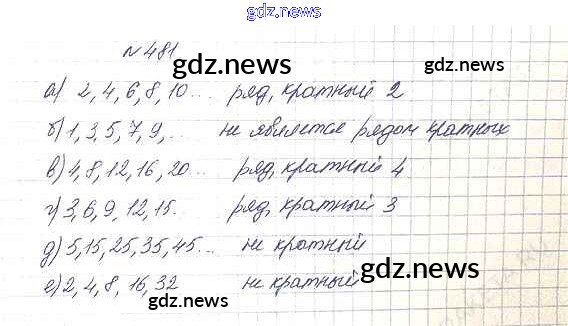 gdz.news
№ 481
gdz.news
а) 2, 4, 6, 8, 10... ряд, кратный 2
б) 1, 3, 5, 7, 9, .. не является рядом кратных
в) 4, 8, 12, 16, 20... ряд, кратный 4
г) 3, 6, 9, 12, 15.. ряд, кратный 3
д) 5, 15, 25, 35, 45... не кратный
gdz.news
е) 2, 4, 8, 16, 32 не кратный
gdz.news